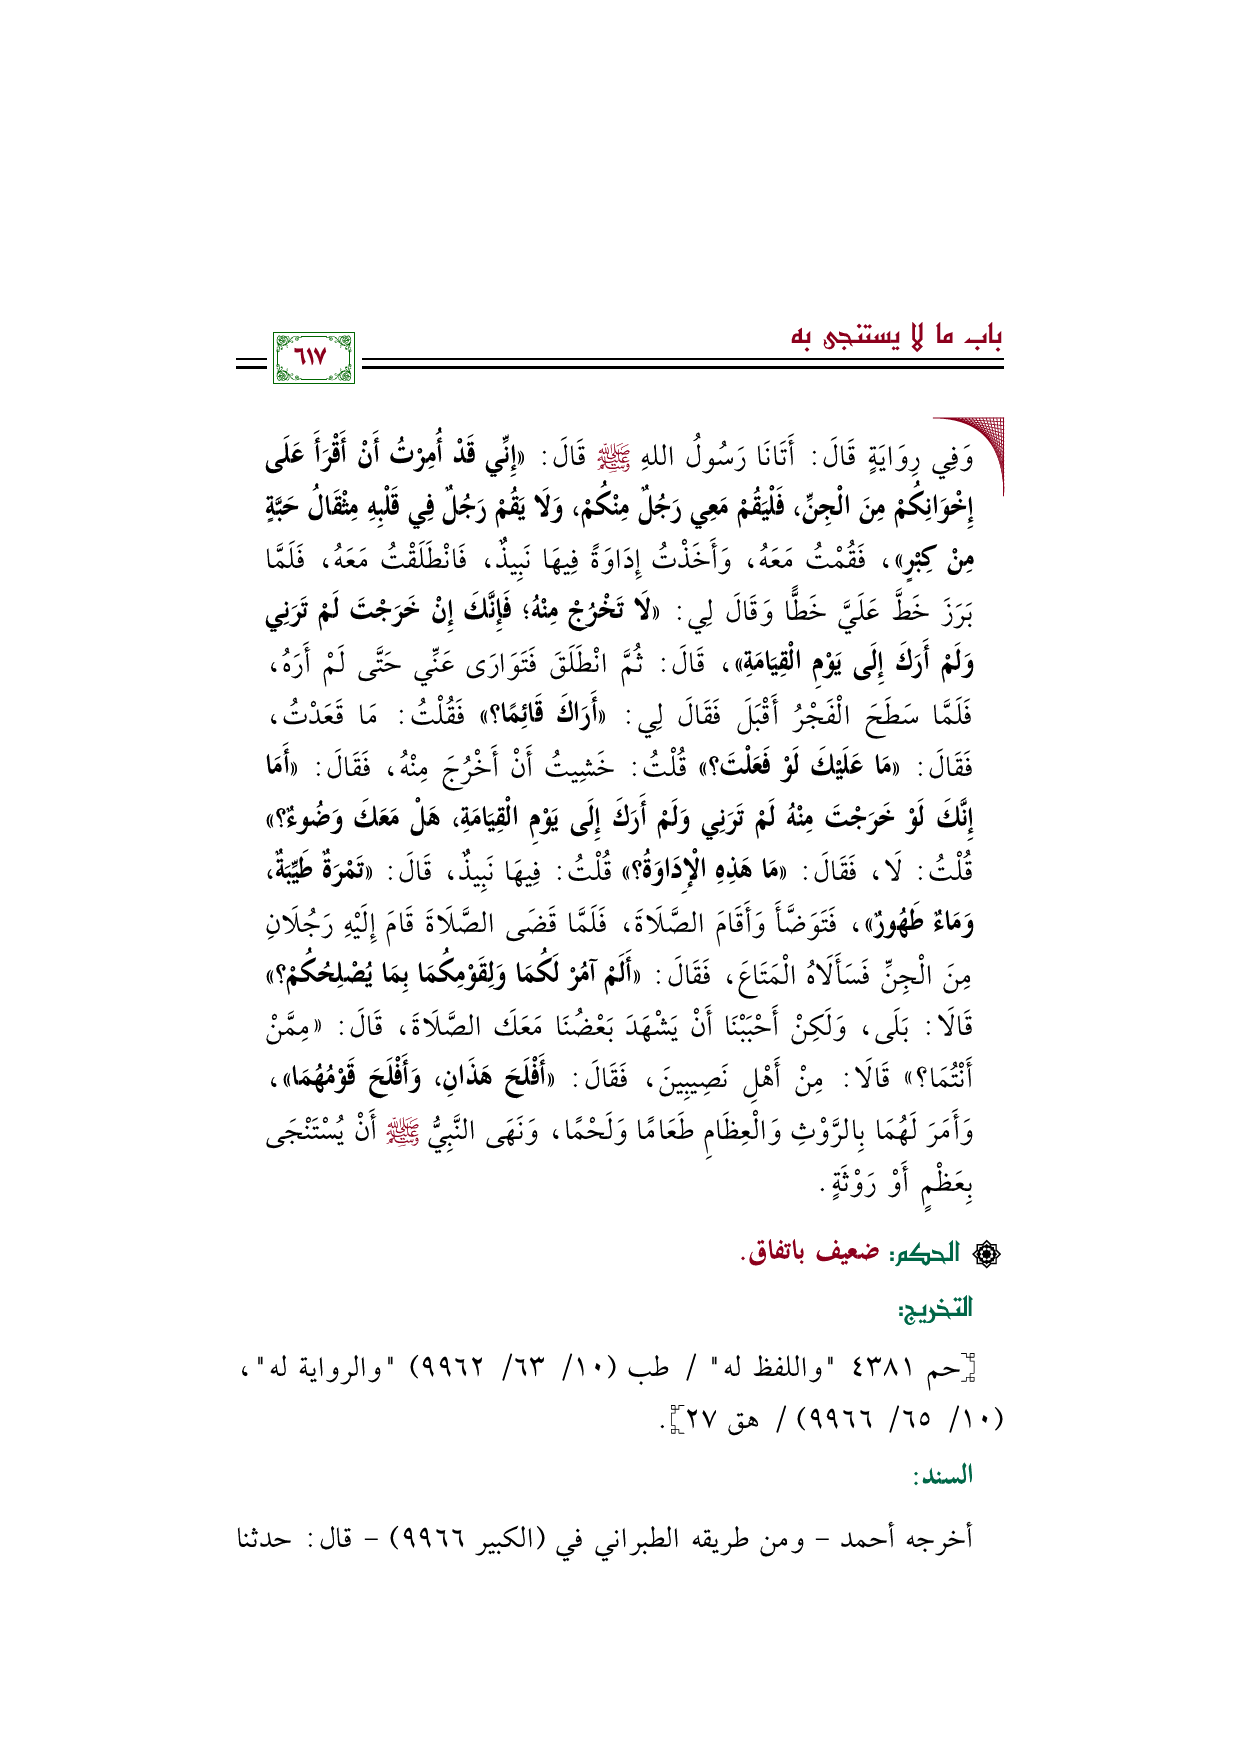 باب ما لا يستنجى به
٦١٧
وَفِي رِوَايَةٍ قَالَ: أَتَانَا رَسُولُ اللهِ ﷺ قَالَ: «إِنِّي قَدْ أُمِرْتُ أَنْ أَقْرَأَ عَلَى
إِخْوَانِكُمْ مِنَ الْجِنِّ، فَلْيَقُمْ مَعِي رَجُلٌ مِنْكُمْ، وَلَا يَقُمْ رَجُلٌ فِي قَلْبِهِ مِثْقَالُ حَبَّةٍ
مِنْ كِبْرٍ»، فَقُمْتُ مَعَهُ، وَأَخَذْتُ إِدَاوَةً فِيهَا نَبِيذٌ، فَانْطَلَقْتُ مَعَهُ، فَلَمَّا
بَرَزَ خَطَّ عَلَيَّ خَطًّا وَقَالَ لِي: «لَا تَخْرُجْ مِنْهُ؛ فَإِنَّكَ إِنْ خَرَجْتَ لَمْ تَرَنِي
وَلَمْ أَرَكَ إِلَى يَوْمِ الْقِيَامَةِ»، قَالَ: ثُمَّ انْطَلَقَ فَتَوَارَى عَنِّي حَتَّى لَمْ أَرَهُ،
فَلَمَّا سَطَحَ الْفَجْرُ أَقْبَلَ فَقَالَ لِي: «أَرَاكَ قَائِمًا؟» فَقُلْتُ: مَا قَعَدْتُ،
فَقَالَ: «مَا عَلَيْكَ لَوْ فَعَلْتَ؟» قُلْتُ: خَشِيتُ أَنْ أَخْرُجَ مِنْهُ، فَقَالَ: «أَمَا
إِنَّكَ لَوْ خَرَجْتَ مِنْهُ لَمْ تَرَنِي وَلَمْ أَرَكَ إِلَى يَوْمِ الْقِيَامَةِ، هَلْ مَعَكَ وَضُوءٌ؟»
قُلْتُ: لَا، فَقَالَ: «مَا هَذِهِ الْإِدَاوَةُ؟» قُلْتُ: فِيهَا نَبِيذٌ، قَالَ: «تَمْرَةٌ طَيِّبَةٌ،
وَمَاءٌ طَهُورٌ»، فَتَوَضَّأَ وَأَقَامَ الصَّلَاةَ، فَلَمَّا قَضَى الصَّلَاةَ قَامَ إِلَيْهِ رَجُلَانِ
مِنَ الْجِنِّ فَسَأَلَاهُ الْمَتَاعَ، فَقَالَ: «أَلَمْ آمُرْ لَكُمَا وَلِقَوْمِكُمَا بِمَا يُصْلِحُكُمْ؟»
قَالَا: بَلَى، وَلَكِنْ أَحْبَبْنَا أَنْ يَشْهَدَ بَعْضُنَا مَعَكَ الصَّلَاةَ، قَالَ: «مِمَّنْ
أَنْتُمَا؟» قَالَا: مِنْ أَهْلِ نَصِيبِينَ، فَقَالَ: «أَفْلَحَ هَذَانِ، وَأَفْلَحَ قَوْمُهُمَا»،
وَأَمَرَ لَهُمَا بِالرَّوْثِ وَالْعِظَامِ طَعَامًا وَلَحْمًا، وَنَهَى النَّبِيُّ ﷺ أَنْ يُسْتَنْجَى
بِعَظْمٍ أَوْ رَوْثَةٍ.
الحكم: ضعيف باتفاق.
التخريج:
[حم ٤٣٨١ "واللفظ له" / طب (١٠/ ٦٣/ ٩٩٦٢) "والرواية له"،
(١٠/ ٦٥/ ٩٩٦٦) / هق ٢٧].
السند:
أخرجه أحمد – ومن طريقه الطبراني في (الكبير ٩٩٦٦) – قال: حدثنا